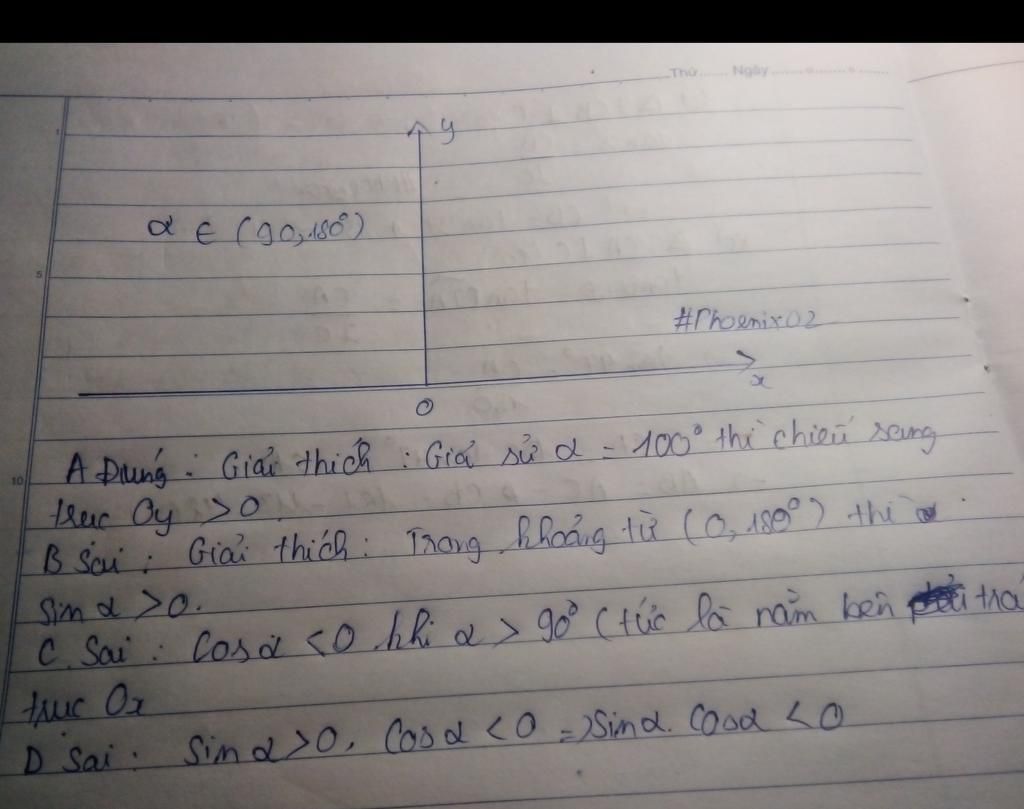 Thứ....... Ngày
y
α ∈ (90,180°)
#Phoenix02
x
O
A Đúng : Giải thích : Giả sử α = 100° thì chiếu sang
trục Oy > 0
B Sai : Giải thích : Trong khoảng từ (0,180°) thì
Sin α > 0.
C. Sai : Cos α < 0 khi α > 90° (tức là nằm bên trá
trục Ox
D Sai : Sin α > 0, Cos α < 0 => Sin α. Cos α < 0